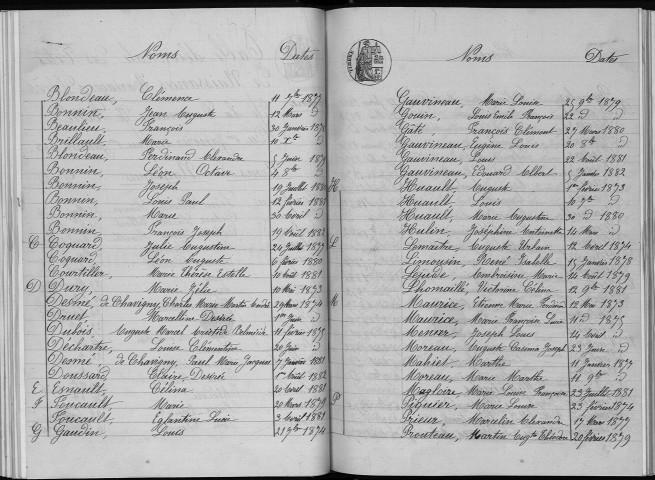 Noms Dates
Blondeau, Clémence 11 7bre 1877
Bonnin, Jean Auguste 12 Mars d
Beaulieu, François 30 Janvier 1878
Brillault, Marie 10 Xbre d
Blondeau, Ferdinand Alexandre 5 Juin 1879
Bonnin, Léon Octave 4 8bre d
Bonnin, Joseph 19 Juillet 1880
Bonnin, Louis Paul 12 février 1881
Bonnin, Marie 30 Avril d
Bonnin, François Joseph 19 Avril 1882
C Coquard, Julie Augustine 26 Juillet 1877
Coquard, Léon Auguste 6 févr 1880
Courtiller, Marie Thérèse Estelle 10 Août 1881
D Dury, Marie Zélie 10 Mai 1873
Desmé, de Chavigny, Charles Marie Martin 29 Mars 1874
Druet, Marcelline Désirée 1er Juin d
Dubois, Auguste Marcel Aristide 11 février 1877
Déchartre, Louise Clémentine 20 Juin d
Desmé de Chavigny, Paul Marie Jacques 7 Janvier 1881
Doussard, Claire Désirée 1er Août 1882
E Esnault, Célina 20 Avril 1881
F Foucault, Marie 20 Mars 1879
Foucault, Eglantine 3 Avril 1881
G Gaudin, Louis 21 9bre 1874
Noms Dates
Gauvineau, Marie Louise 25 9bre 1879
Gouin, Louis Emile François 22 d d
Gaté, François Clément 27 Mars 1880
Gauvineau, Eugène Louis 20 8bre d
Gauvineau, Louis 22 Août 1881
Gauvineau, Edouard Albert 5 Janvier 1882
H Huault, Auguste 1er février 1873
Huault, Louis 10 7bre d
Huault, Marie Augustine 30 d 1880
Hulin, Joséphine Antoinette 14 Mars d
L Lemaitre, Auguste Urbain 12 Avril 1874
Limousin, René Isabelle 15 Janvier 1878
Ambroisine Marie 14 Août 1879
Lhomaillé, Victorine Célina 12 9bre 1881
M Maurice, Etienne Marie 12 Mai 1873
Maurice, Marie Françoise 11 d 1875
Menier, Joseph Louis 14 Avril d
Moreau, Auguste Casimir Joseph 23 Juin d
Mahiet, Marthe 11 Janvier 1877
Moreau, Marie Marthe 11 9bre d
Magloire, Marie Louise Françoise 23 Juillet 1881
P Piquier, Marie Louise 23 février 1874
Prieur, Marcelin Alexandre 17 Mars 1877
Prouteau, Martin Augte Théodore 20 février 1879